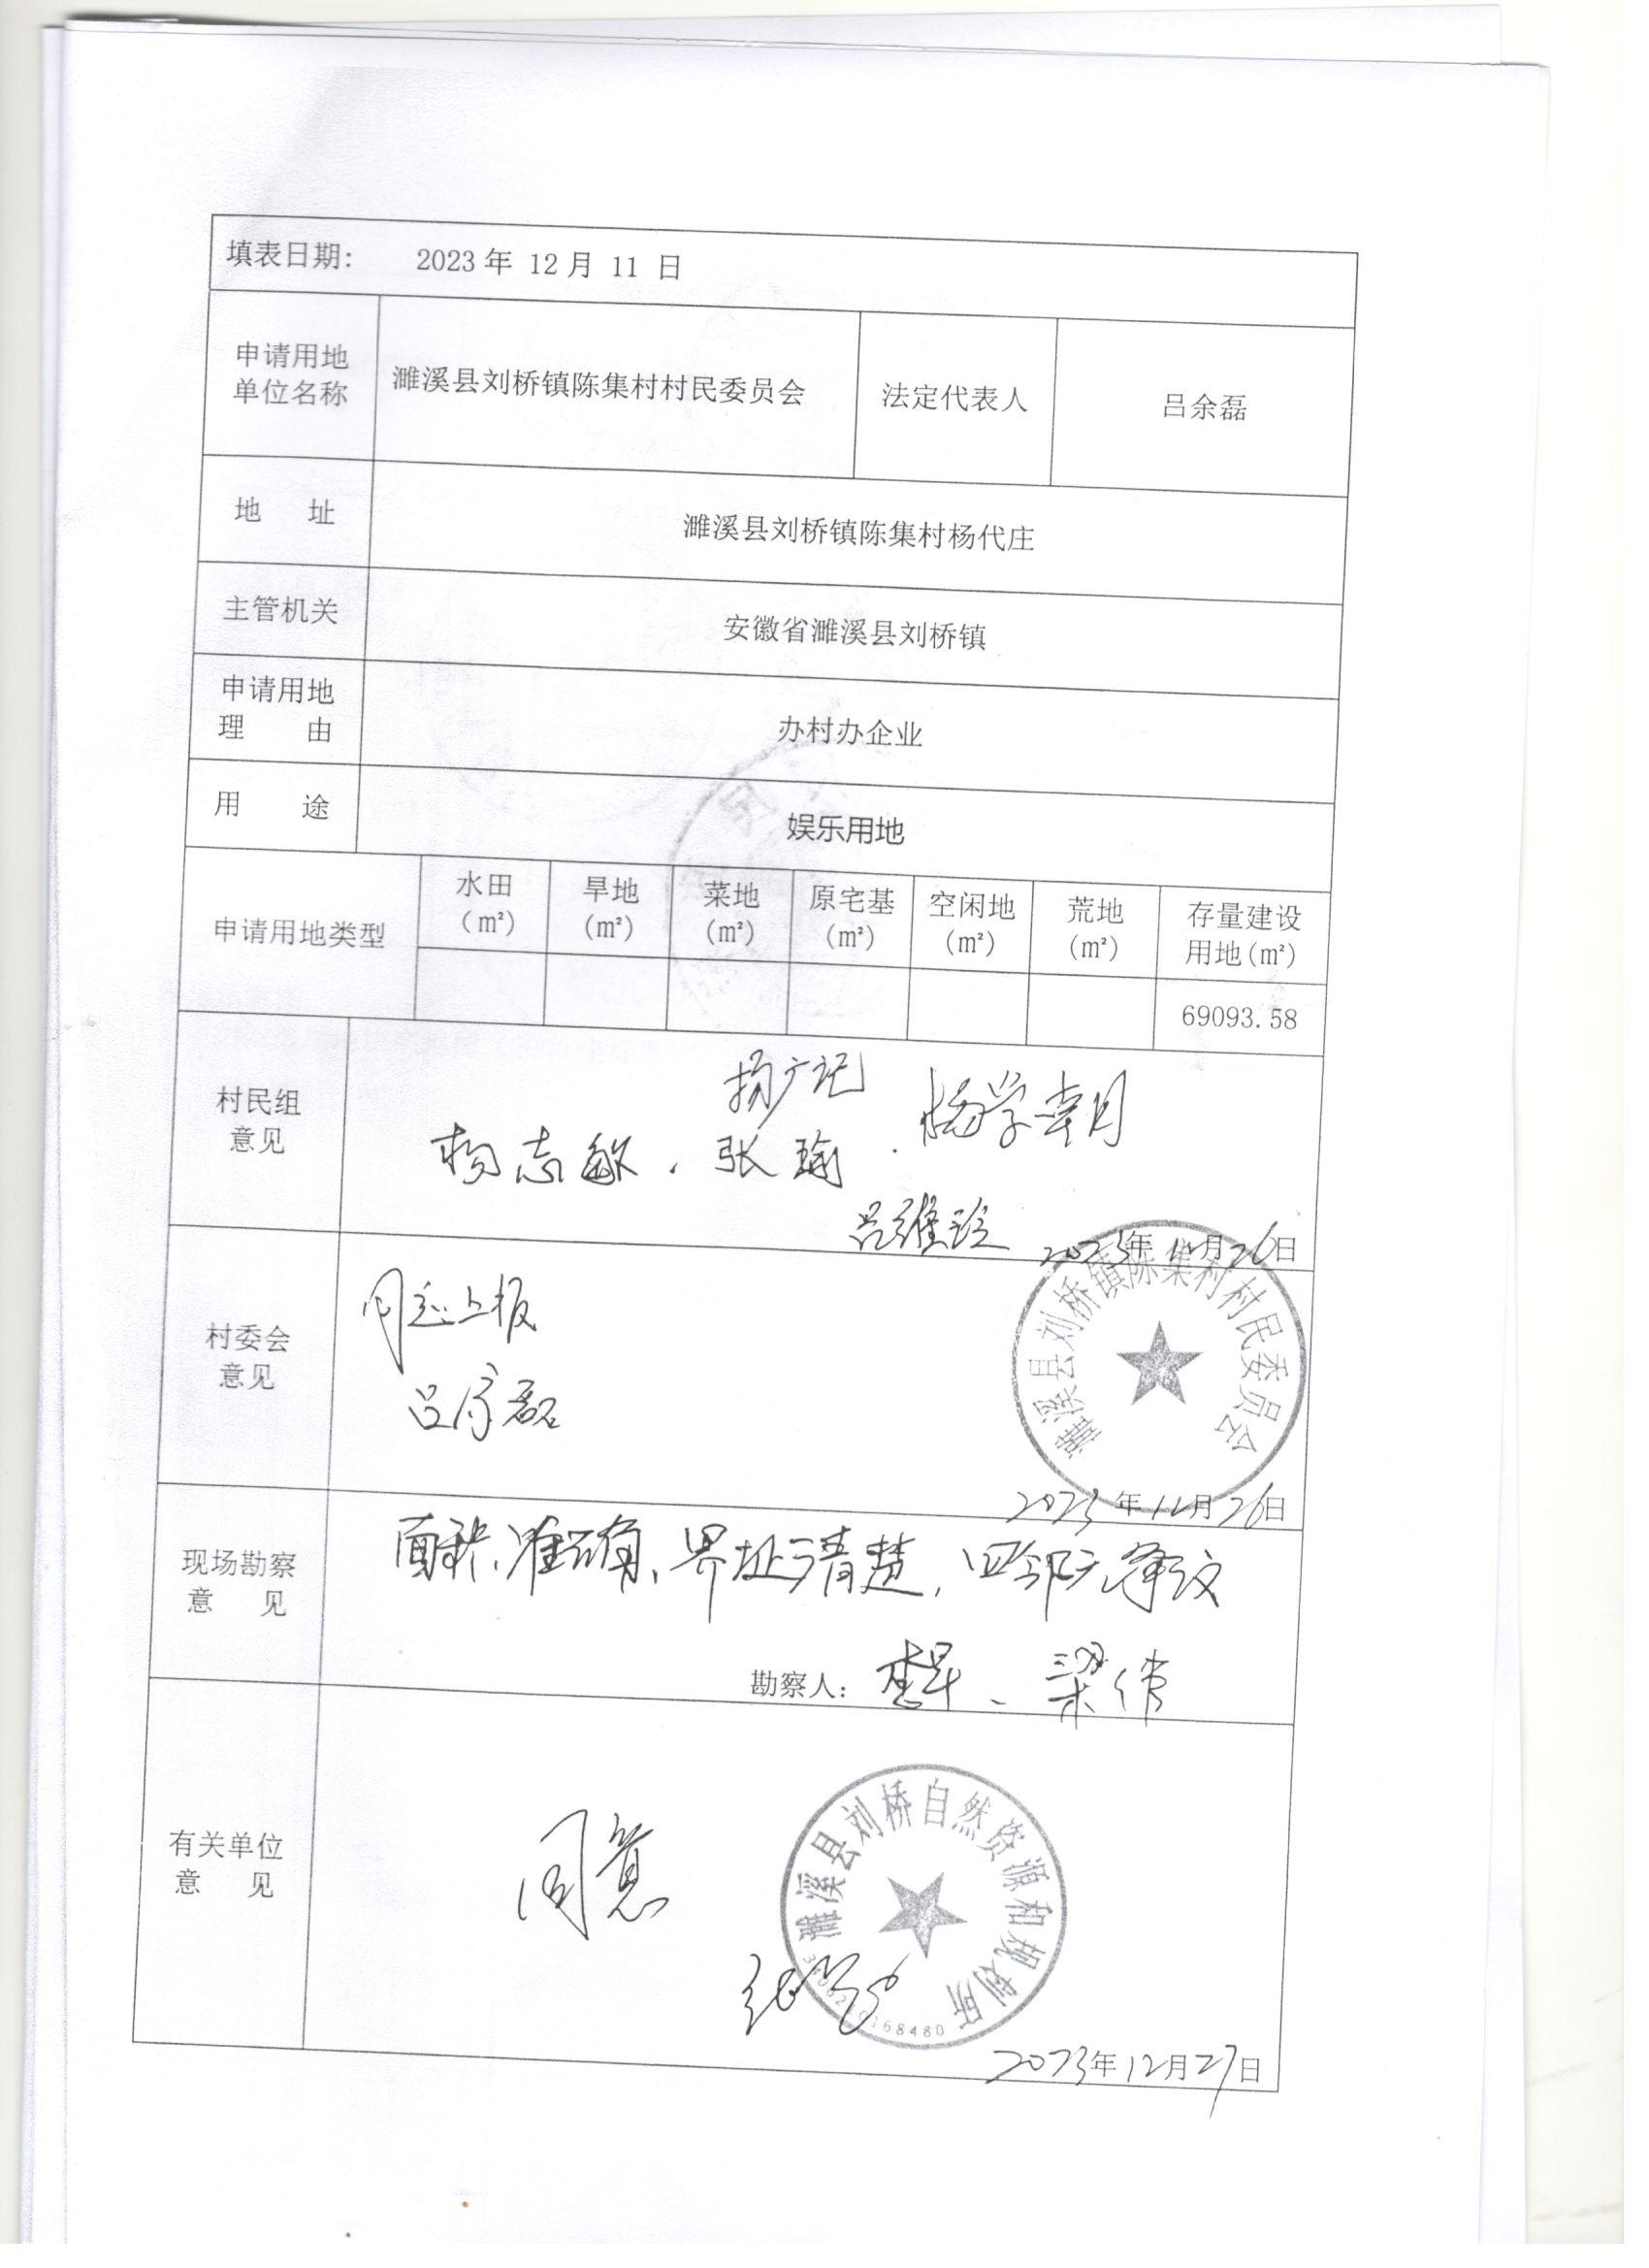 填表日期： 2023 年 12 月 11 日
申请用地
单位名称
濉溪县刘桥镇陈集村村民委员会
法定代表人
吕余磊
地 址
濉溪县刘桥镇陈集村杨代庄
主管机关
安徽省濉溪县刘桥镇
申请用地
理 由
办村办企业
用 途
娱乐用地
申请用地类型
水田
(㎡)
旱地
(㎡)
菜地
(㎡)
原宅基
(㎡)
空闲地
(㎡)
荒地
(㎡)
存量建设
用地(㎡)
69093.58
村民组
意见
杨广记
杨志敏 . 张瑜 .
2023年 12月 26日
村委会
意见
同意上报
吕余磊
濉溪县刘桥镇陈集村村民委员会
2023 年 12月 26日
现场勘察
意 见
面积准确、界址清楚，四邻无争议
勘察人： 梁倩
有关单位
意 见
同意
濉溪县刘桥自然资源和规划所
2023年12月27日